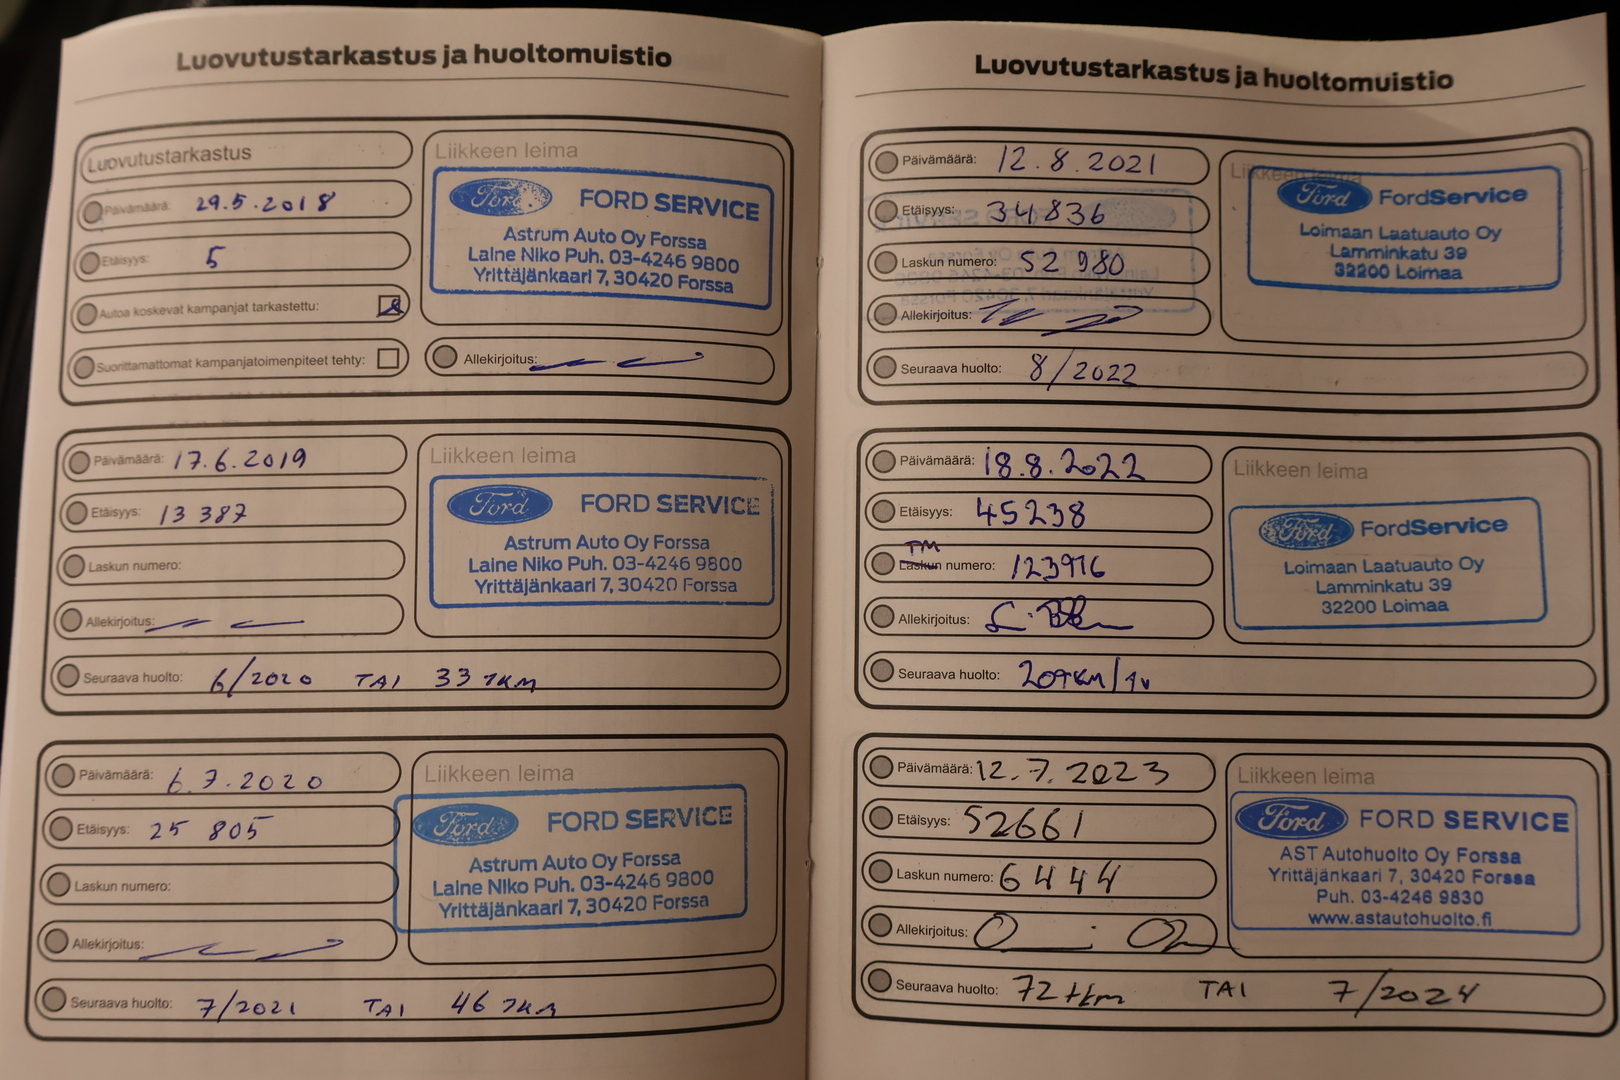 Luovutustarkastus ja huoltomuistio
Luovutustarkastus
Päivämäärä: 29.5.2018
Etäisyys: 5
Autoa koskevat kampanjat tarkastettu:
Suorittamattomat kampanjatoimenpiteet tehty:
Liikkeen leima
Ford FORD SERVICE
Astrum Auto Oy Forssa
Laine Niko Puh. 03-4246 9800
Yrittäjänkaari 7, 30420 Forssa
Allekirjoitus:
Päivämäärä: 17.6.2019
Etäisyys: 13 387
Laskun numero:
Allekirjoitus:
Liikkeen leima
Ford FORD SERVICE
Astrum Auto Oy Forssa
Laine Niko Puh. 03-4246 9800
Yrittäjänkaari 7, 30420 Forssa
Seuraava huolto: 6/2020 TAI 33 TKM
Päivämäärä: 6.7.2020
Etäisyys: 25 805
Laskun numero:
Allekirjoitus:
Liikkeen leima
Ford FORD SERVICE
Astrum Auto Oy Forssa
Laine Niko Puh. 03-4246 9800
Yrittäjänkaari 7, 30420 Forssa
Seuraava huolto: 7/2021 TAI 46 TKM
Luovutustarkastus ja huoltomuistio
Päivämäärä: 12.8.2021
Etäisyys: 34836
Laskun numero: 52980
Allekirjoitus:
Liikkeen leima
Ford FordService
Loimaan Laatuauto Oy
Lamminkatu 39
32200 Loimaa
Seuraava huolto: 8/2022
Päivämäärä: 18.8.2022
Etäisyys: 45238
TM
Laskun numero: 123916
Allekirjoitus:
Liikkeen leima
Ford FordService
Loimaan Laatuauto Oy
Lamminkatu 39
32200 Loimaa
Seuraava huolto: 20tkm/1v
Päivämäärä: 12.7.2023
Etäisyys: 52661
Laskun numero: 6444
Allekirjoitus:
Liikkeen leima
Ford FORD SERVICE
AST Autohuolto Oy Forssa
Yrittäjänkaari 7, 30420 Forssa
Puh. 03-4246 9830
www.astautohuolto.fi
Seuraava huolto: 72 tkm TAI 7/2024